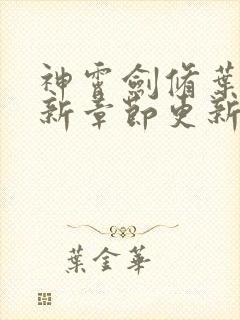 神霄劍脩葉
新章節更新
葉金華